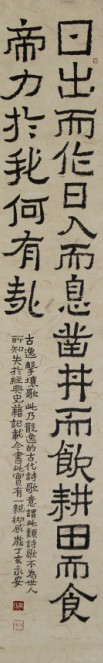 日出而作日入而息鑿井而飲耕田而食
帝力於我何有哉
古逸擊壤歌此乃散逸的古代詩歌意謂此類詩歌不為世人
所知失於經典史籍記載今書此實有一親切感歲丁亥永安